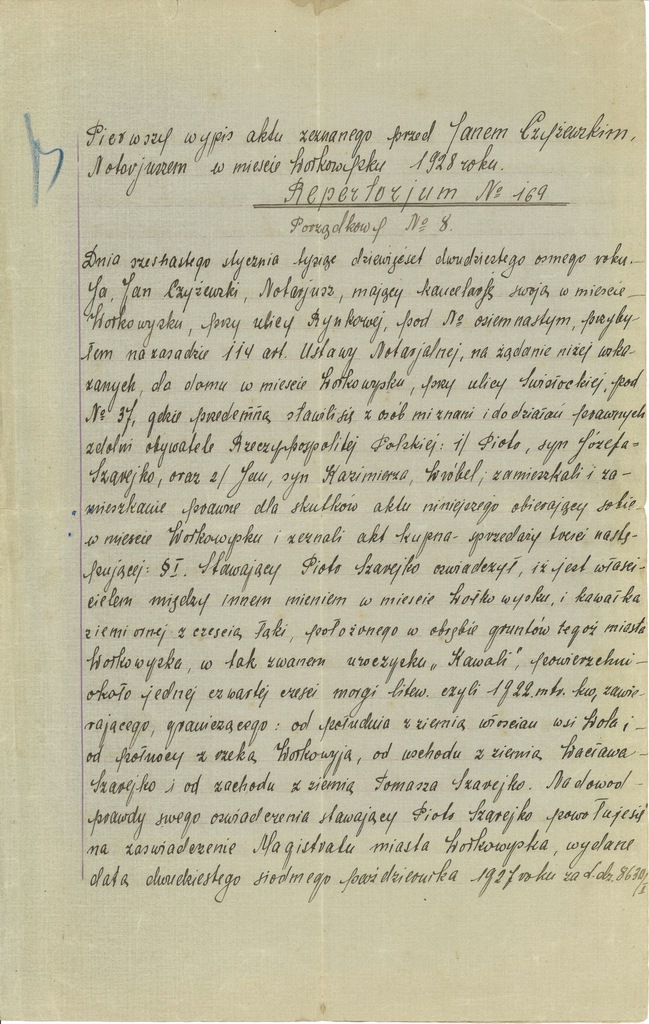 Pierwszy wypis aktu zeznanego przed Janem Czyżewskim,
Notarjuszem w mieście Wołkowysku 1928 roku.
Repertorjum № 169
Porządkowy № 8.
Dnia szesnastego stycznia tysiąc dziewięćset dwudziestego osmego roku.—
Ja, Jan Czyżewski, Notarjusz, mający kancelarję swoją w mieście—
Wołkowysku, przy ulicy Rynkowej, pod № osiemnastym, przyby-
łem na zasadzie 114 art. Ustawy Notarjalnej, na żądanie niżej wska-
zanych, do domu w mieście Wołkowysku, przy ulicy Świsłockiej, pod
№ 37, gdzie przedemną stawili się z osób mi znani i do działań prawnych
zdolni obywatele Rzeczypospolitej Polskiej: 1/ Piotr, syn Józefa—
Szarejko, oraz 2/ Jan, syn Kazimierza, Wróbel; zamieszkali i za-
mieszkanie prawne dla skutków aktu niniejszego obierający sobie
w mieście Wołkowysku i zeznali akt kupna-sprzedaży treści nastę-
pującej: §I. Stawający Piotr Szarejko oświadczył, iż jest właści-
cielem między innem mieniem w mieście Wołkowysku, i kawałka
ziemi ornej z częścią łąki, położonego w obrębie gruntów tegoż miasta
Wołkowyska, w tak zwanem uroczysku „Kawali", powierzchni—
około jednej czwartej części morgi litew. czyli 1922 mtr. kw, zawie-
rającego, graniczącego: od południa z ziemią włościan wsi Wola i—
od północy z rzeką Wołkowyją, od wschodu z ziemią Wacława—
Szarejko i od zachodu z ziemią Tomasza Szarejko. Na dowod—
prawdy swego oświadczenia stawający Piotr Szarejko powołuje się
na zaświadczenie Magistratu miasta Wołkowyska, wydane
datą dwudziestego siodmego października 1927 roku za L.dz. 8630/I